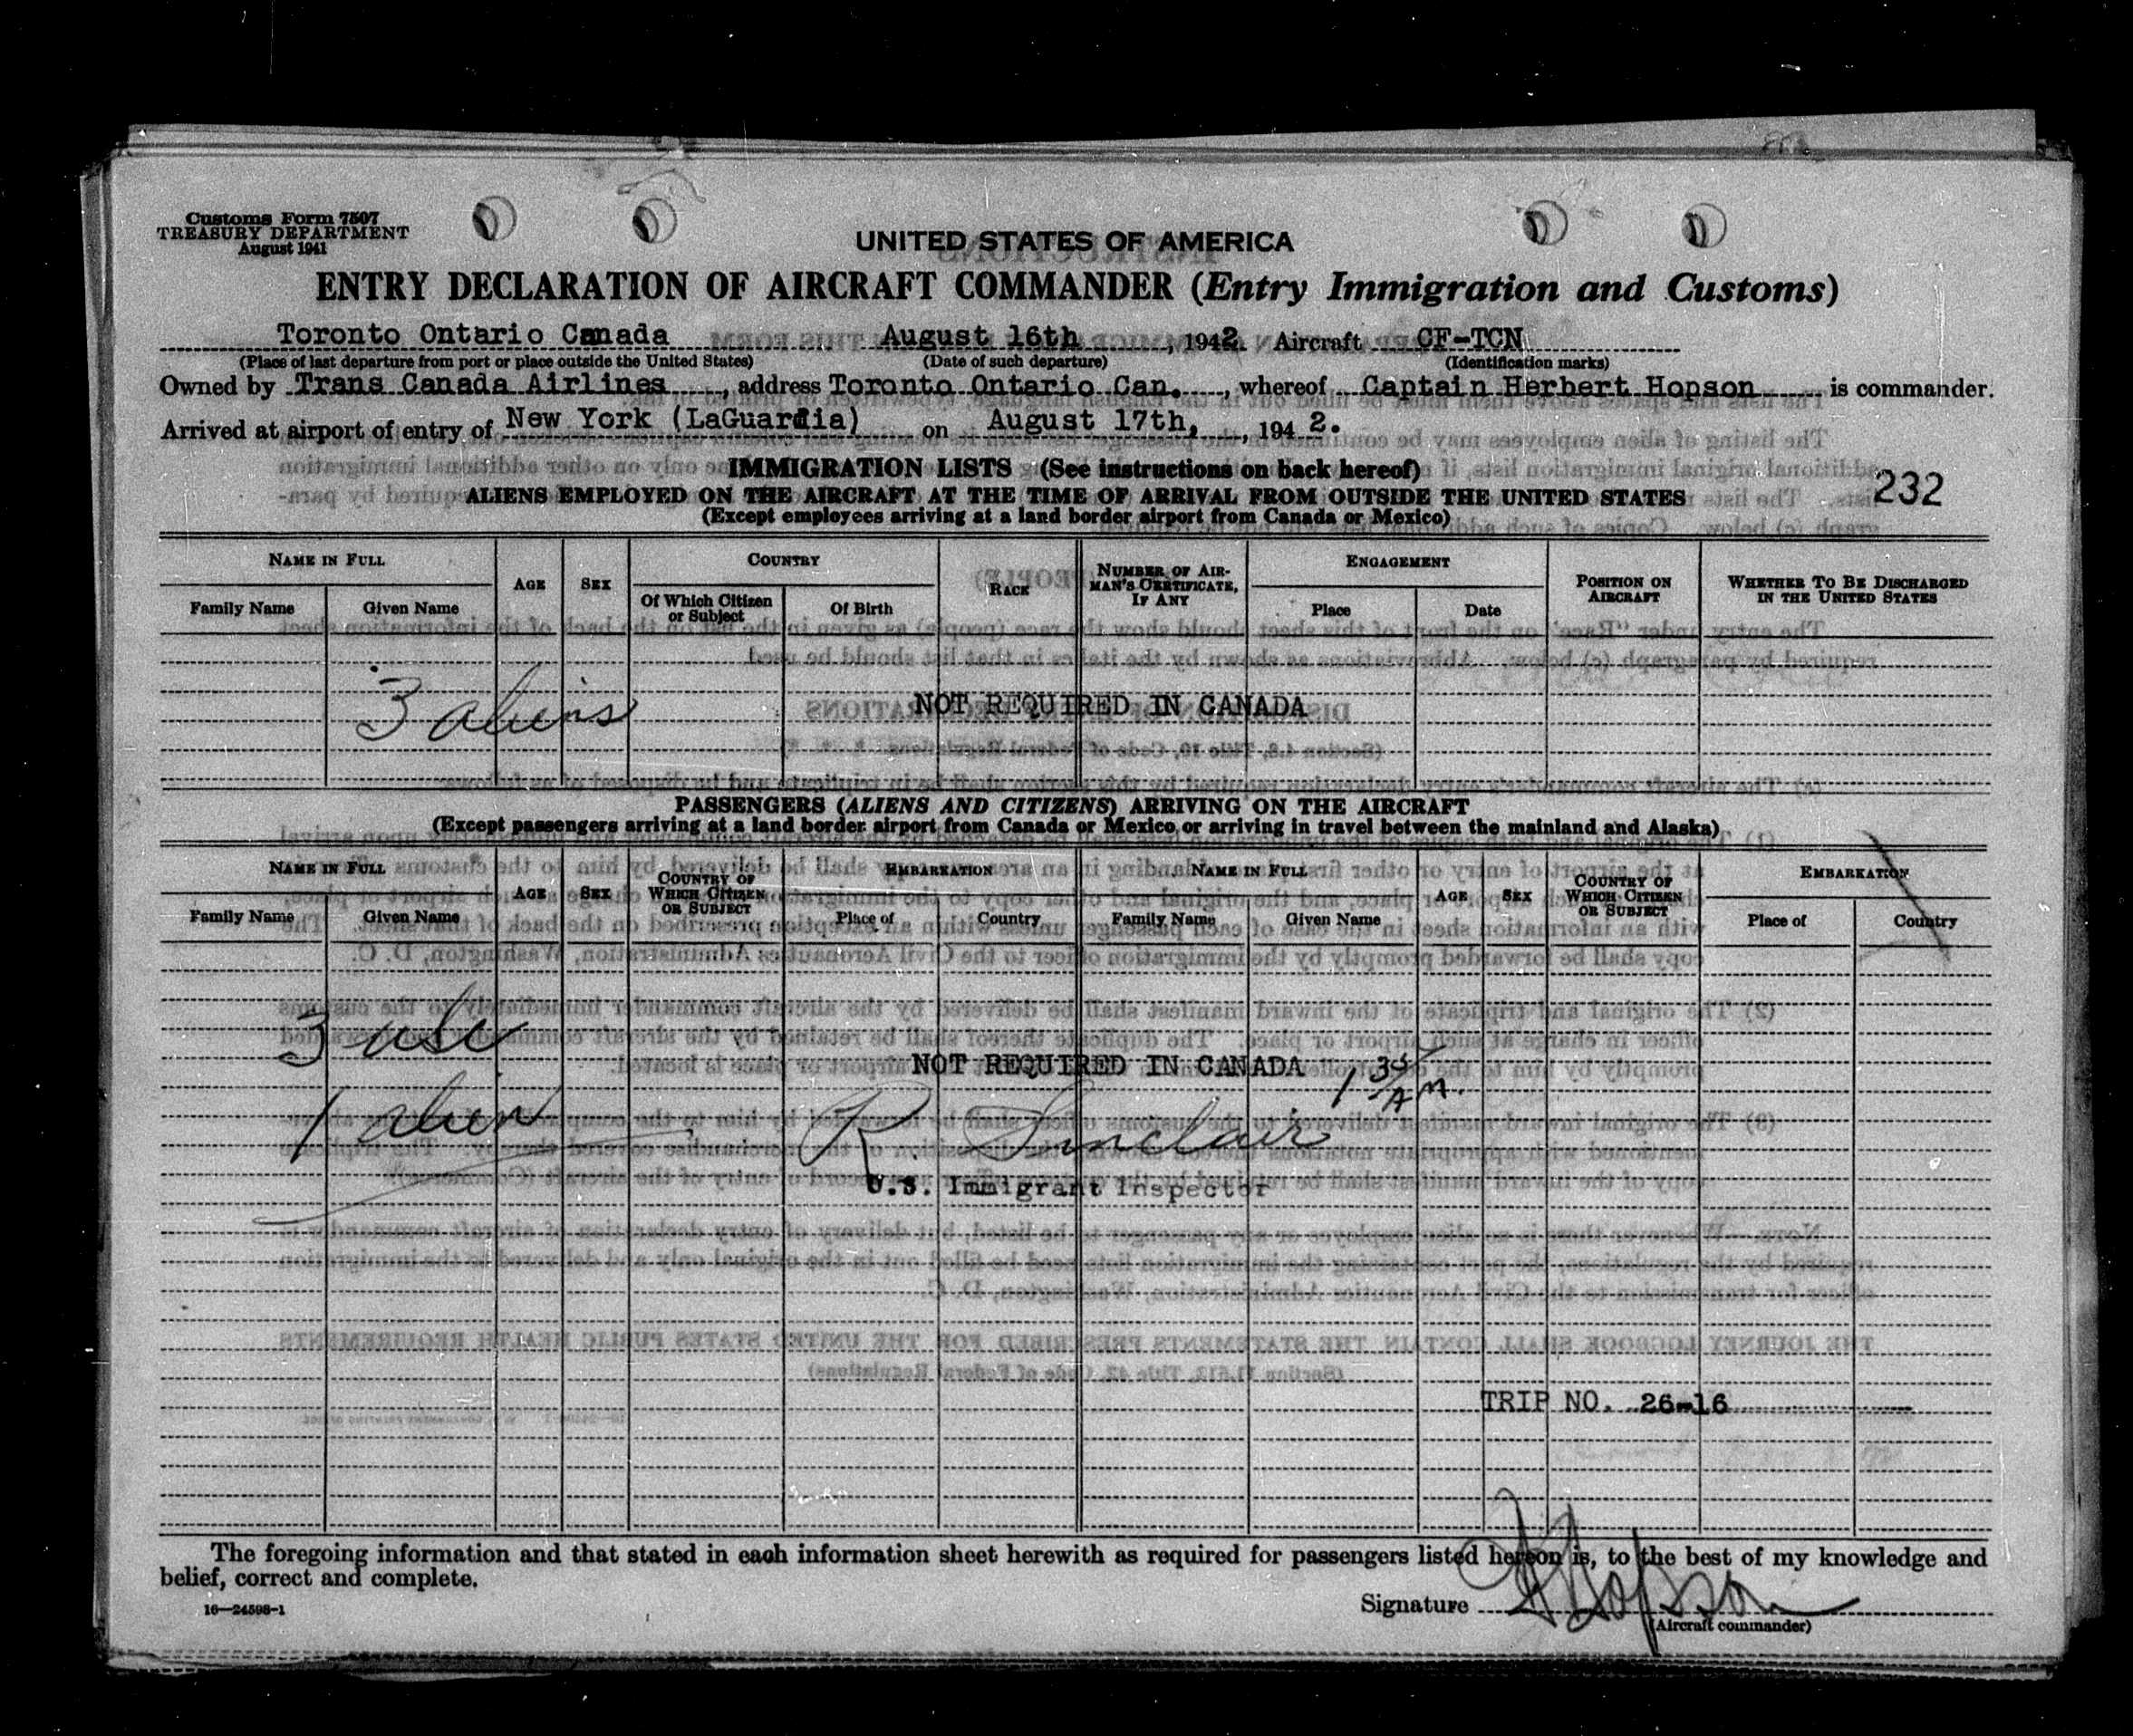 Customs Form 7507
TREASURY DEPARTMENT
August 1941
UNITED STATES OF AMERICA
ENTRY DECLARATION OF AIRCRAFT COMMANDER (Entry Immigration and Customs)
Toronto Ontario Canada August 16th, 1942. Aircraft CF-TCN
(Place of last departure from port or place outside the United States) (Date of such departure) (Identification marks)
Owned by Trans Canada Airlines, address Toronto Ontario Can., whereof Captain Herbert Hopson is commander.
Arrived at airport of entry of New York (LaGuardia) on August 17th, , 194 2.
IMMIGRATION LISTS (See instructions on back hereof)
232
ALIENS EMPLOYED ON THE AIRCRAFT AT THE TIME OF ARRIVAL FROM OUTSIDE THE UNITED STATES
(Except employees arriving at a land border airport from Canada or Mexico)
NAME IN FULL AGE SEX COUNTRY RACE NUMBER OF AIRMAN'S CERTIFICATE, IF ANY ENGAGEMENT POSITION ON AIRCRAFT WHETHER TO BE DISCHARGED IN THE UNITED STATES
Family Name Given Name Of Which Citizen or Subject Of Birth Place Date
3 aliens NOT REQUIRED IN CANADA
PASSENGERS (ALIENS AND CITIZENS) ARRIVING ON THE AIRCRAFT
(Except passengers arriving at a land border airport from Canada or Mexico or arriving in travel between the mainland and Alaska)
NAME IN FULL AGE SEX COUNTRY OF WHICH CITIZEN OR SUBJECT EMBARKATION NAME IN FULL AGE SEX COUNTRY OF WHICH CITIZEN OR SUBJECT EMBARKATION
Family Name Given Name Place of Country Family Name Given Name Place of Country
3 usc
NOT REQUIRED IN CANADA 1 35 AM.
1 alien R. Sinclair
U.S. Immigrant Inspector
TRIP NO. 26-16
The foregoing information and that stated in each information sheet herewith as required for passengers listed hereon is, to the best of my knowledge and
belief, correct and complete.
16—24598-1
Signature H Hopson
(Aircraft commander)